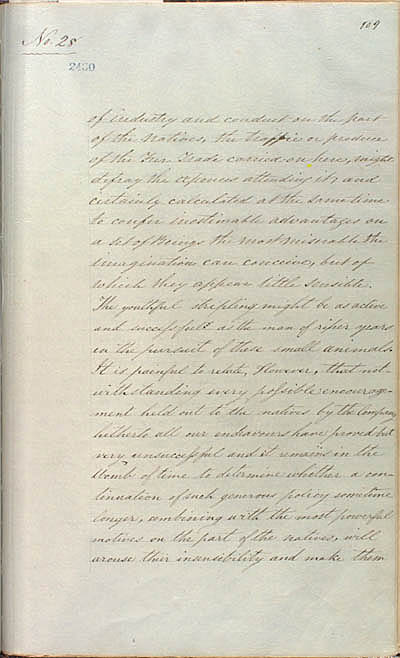 109
No. 28
2430
of industry and conduct on the part
of the Natives, the traffic or produce
of the Fur Trade carried on here, might
defray the expences attending it, and
certainly calculated at the same time
to confer inestimable advantages on
a set of Beings the most miserable the
imagination can conceive, but of
which they appear little sensible.
The youthful stripling might be as active
and successful as the man of riper years
in the pursuit of these small animals.
It is painful to relate, However, that not-
withstanding every possible encourage-
ment held out to the natives by the Company
hitherto all our endeavours have proved but
very unsuccessful and it remains in the
Womb of time to determine whether a con-
tinuation of such generous policy sometime
longer, combining with the most powerful
motives on the part of the natives, will
arouse their insensibility and make them